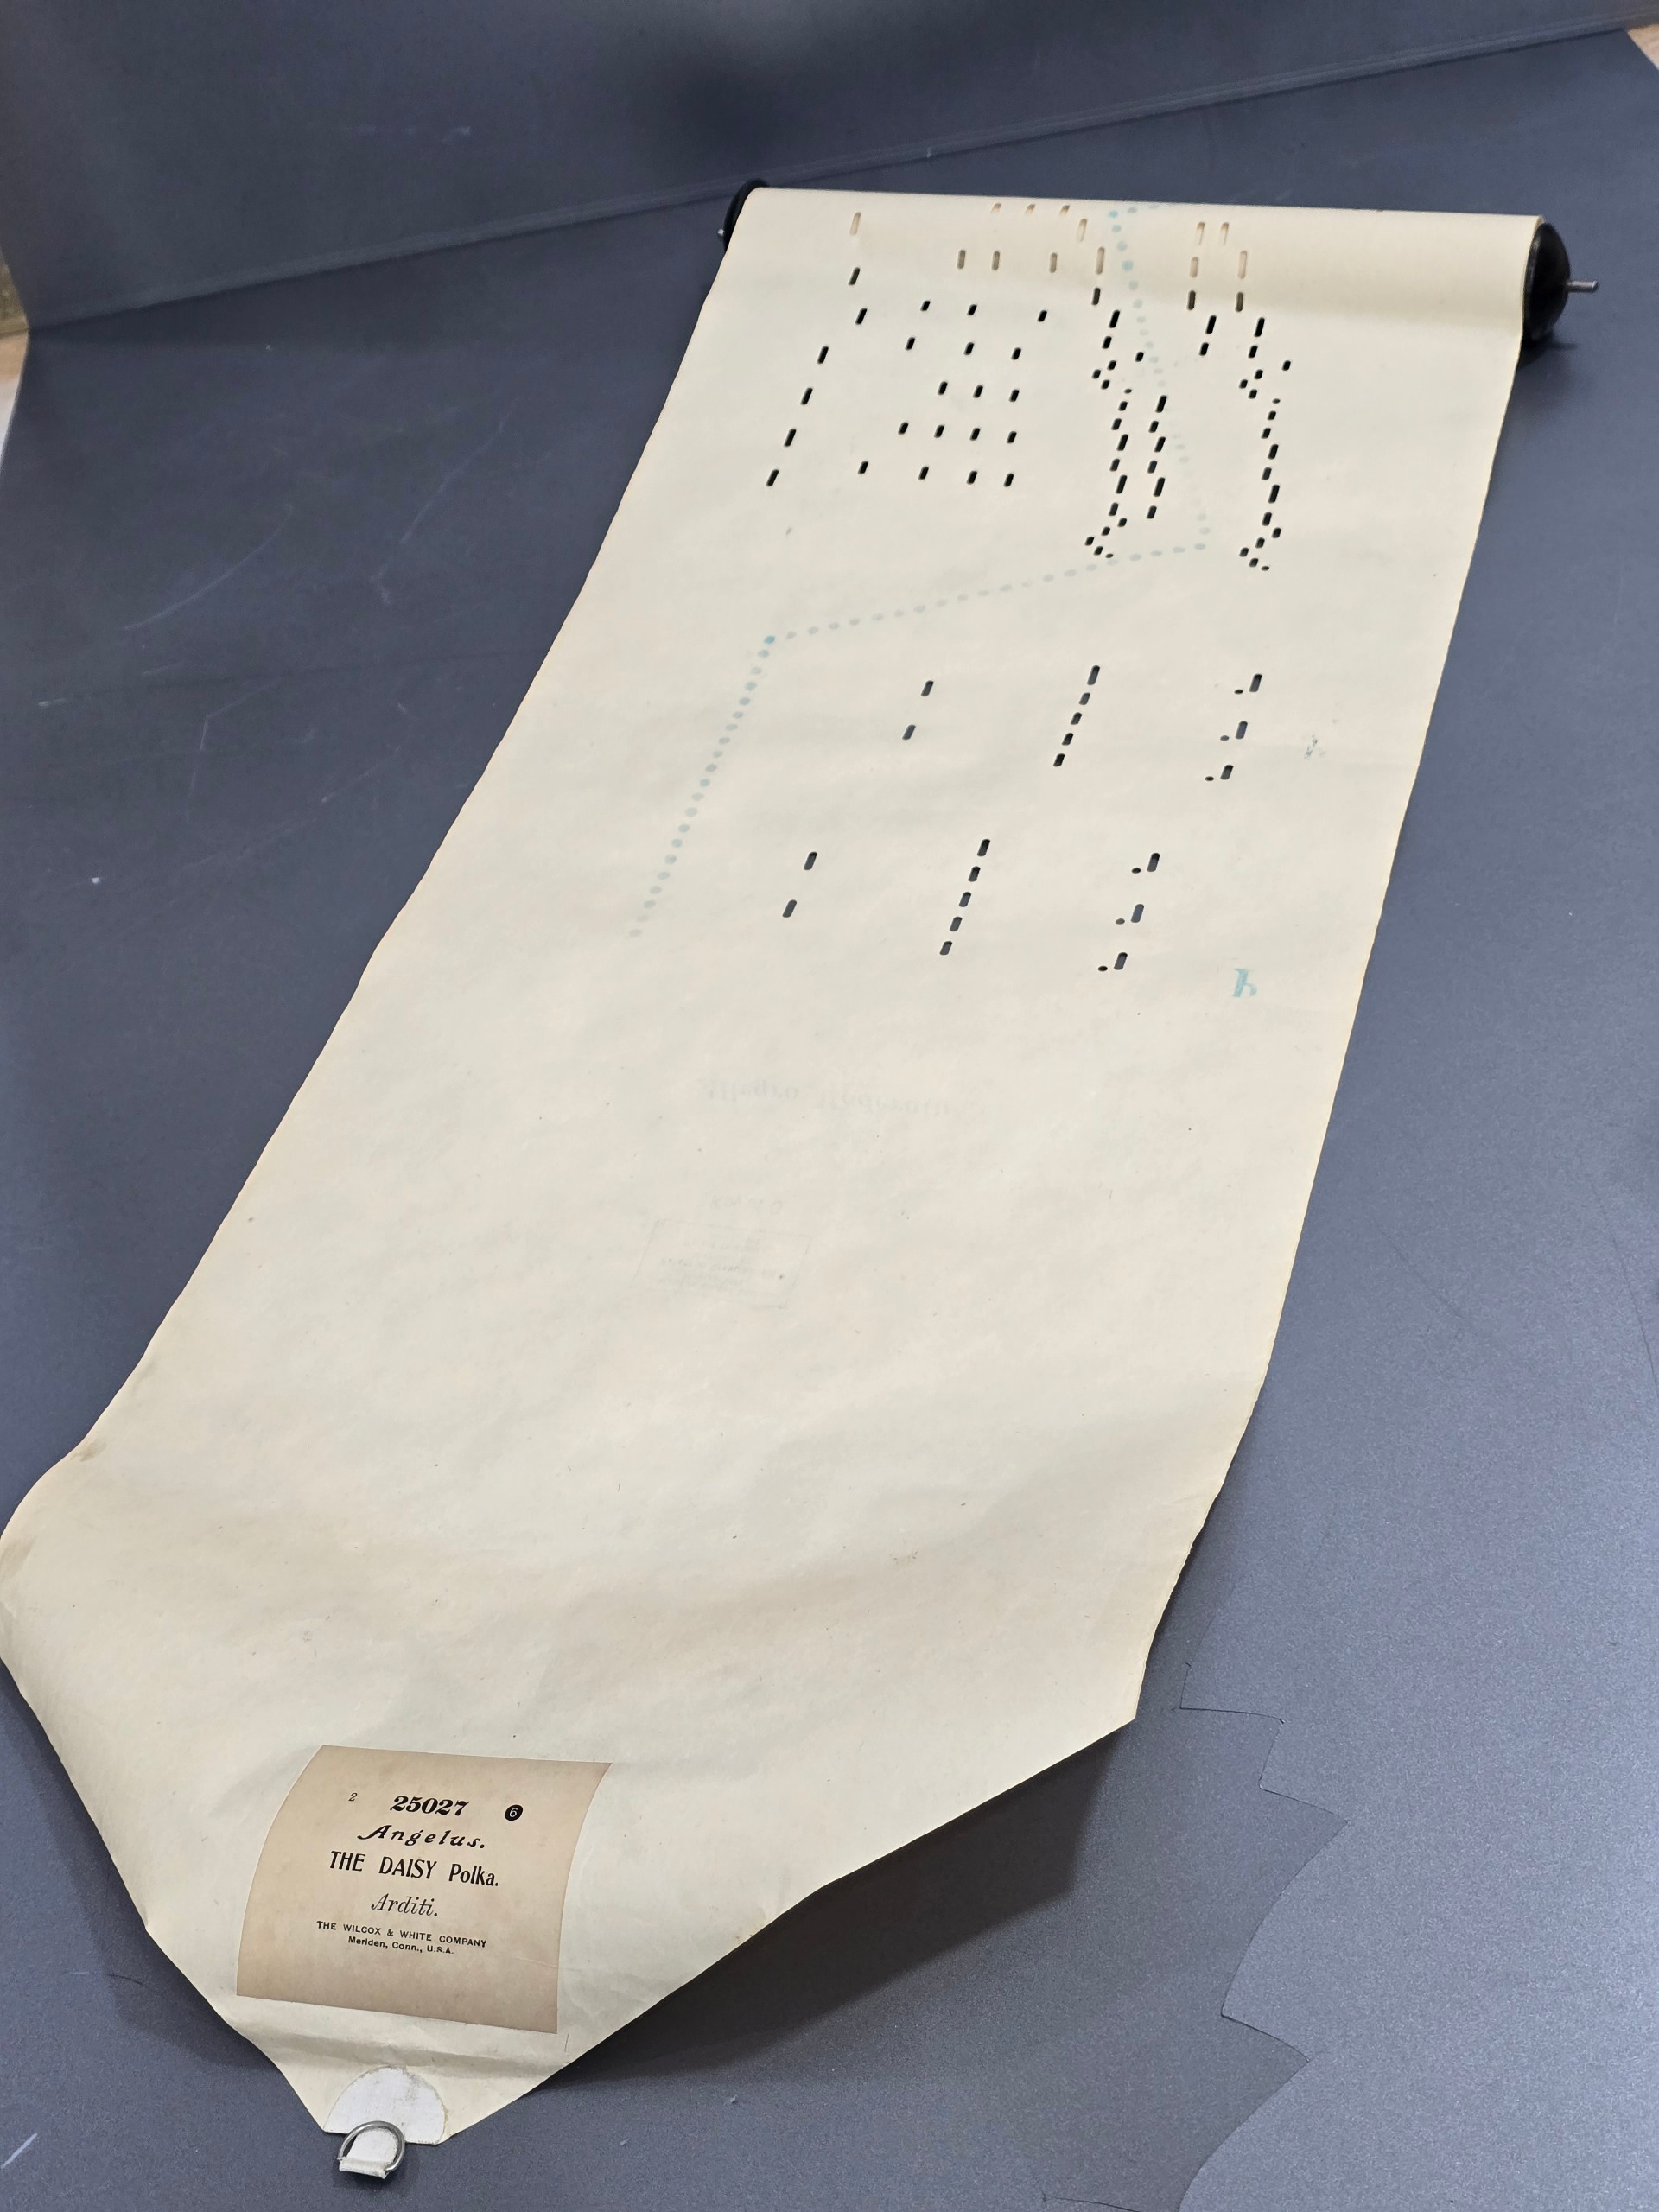 2 25027 6
Angelus.
THE DAISY Polka.
Arditi.
THE WILCOX & WHITE COMPANY
Meriden, Conn., U.S.A.